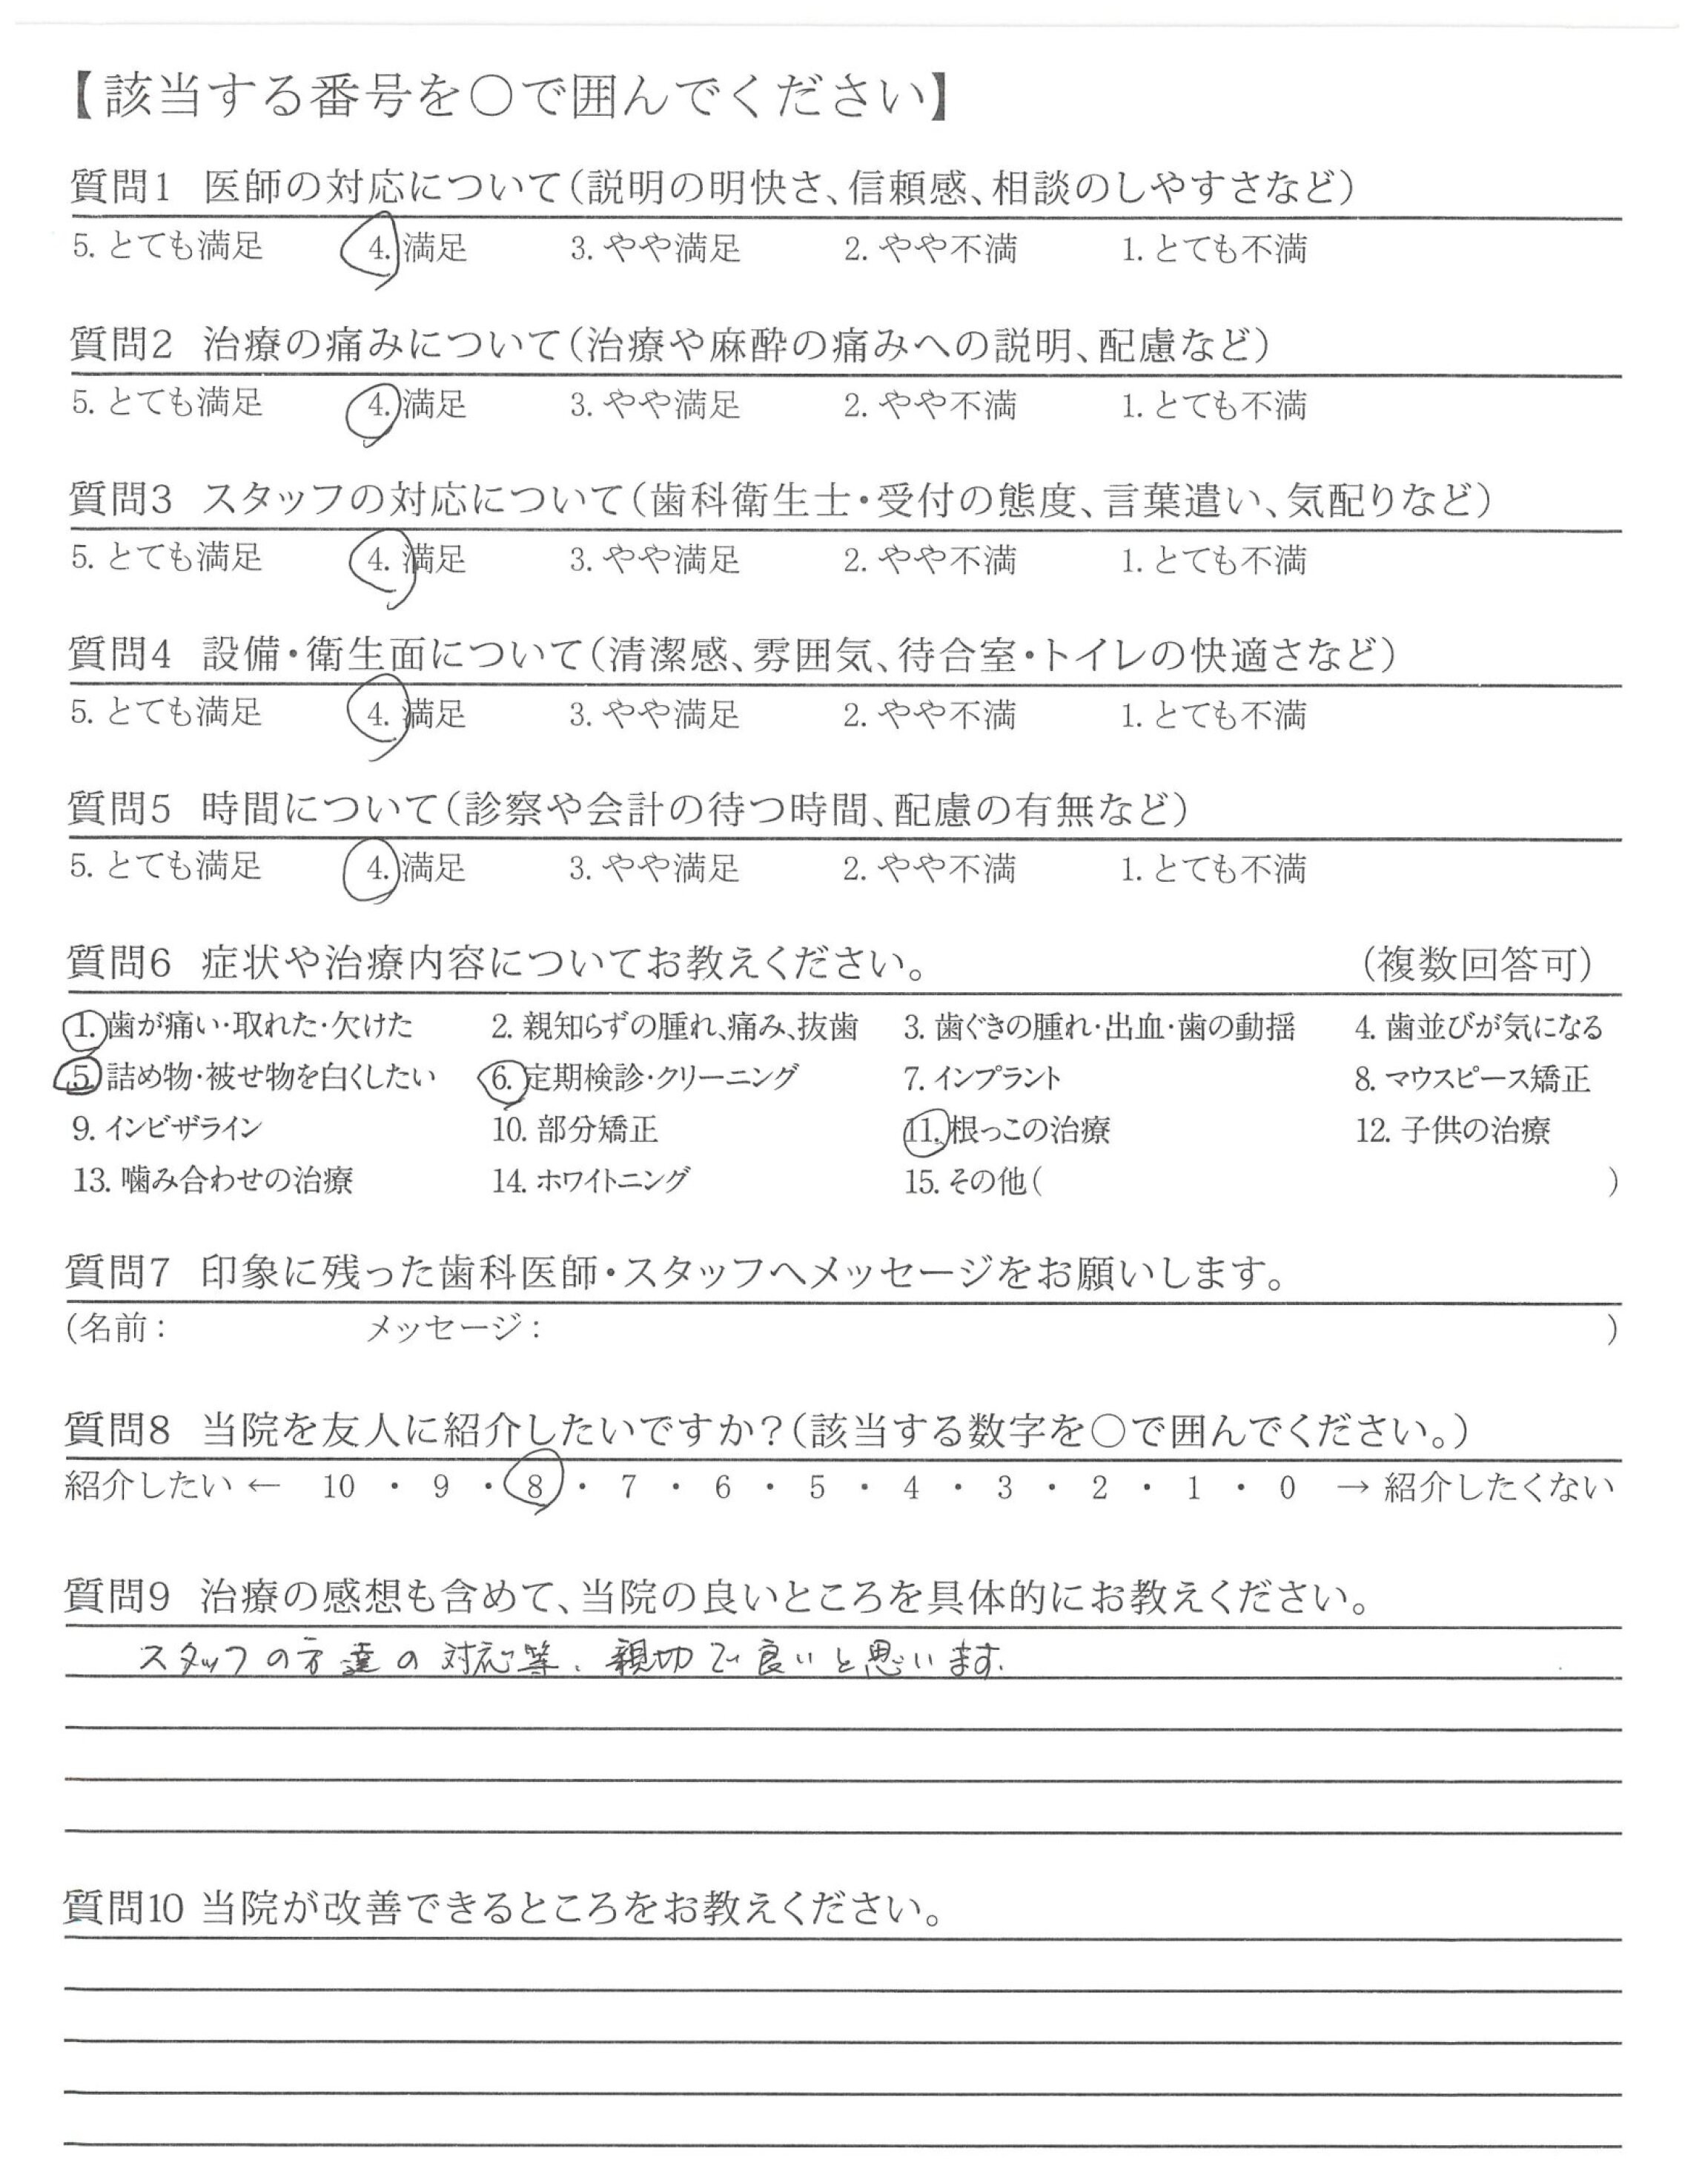 【該当する番号を〇で囲んでください】
質問1 医師の対応について(説明の明快さ、信頼感、相談のしやすさなど)
5. とても満足 4. 満足 3. やや満足 2. やや不満 1. とても不満
質問2 治療の痛みについて(治療や麻酔の痛みへの説明、配慮など)
5. とても満足 4. 満足 3. やや満足 2. やや不満 1. とても不満
質問3 スタッフの対応について(歯科衛生士・受付の態度、言葉遣い、気配りなど)
5. とても満足 4. 満足 3. やや満足 2. やや不満 1. とても不満
質問4 設備・衛生面について(清潔感、雰囲気、待合室・トイレの快適さなど)
5. とても満足 4. 満足 3. やや満足 2. やや不満 1. とても不満
質問5 時間について(診察や会計の待つ時間、配慮の有無など)
5. とても満足 4. 満足 3. やや満足 2. やや不満 1. とても不満
質問6 症状や治療内容についてお教えください。 (複数回答可)
1. 歯が痛い・取れた・欠けた 2. 親知らずの腫れ、痛み、抜歯 3. 歯ぐきの腫れ・出血・歯の動揺 4. 歯並びが気になる
5. 詰め物・被せ物を白くしたい 6. 定期検診・クリーニング 7. インプラント 8. マウスピース矯正
9. インビザライン 10. 部分矯正 11. 根っこの治療 12. 子供の治療
13. 噛み合わせの治療 14. ホワイトニング 15. その他( )
質問7 印象に残った歯科医師・スタッフへメッセージをお願いします。
(名前: メッセージ: )
質問8 当院を友人に紹介したいですか?(該当する数字を〇で囲んでください。)
紹介したい ← 10 ・ 9 ・ 8 ・ 7 ・ 6 ・ 5 ・ 4 ・ 3 ・ 2 ・ 1 ・ 0 → 紹介したくない
質問9 治療の感想も含めて、当院の良いところを具体的にお教えください。
スタッフの方達の対応等、親切で良いと思います。
質問10 当院が改善できるところをお教えください。